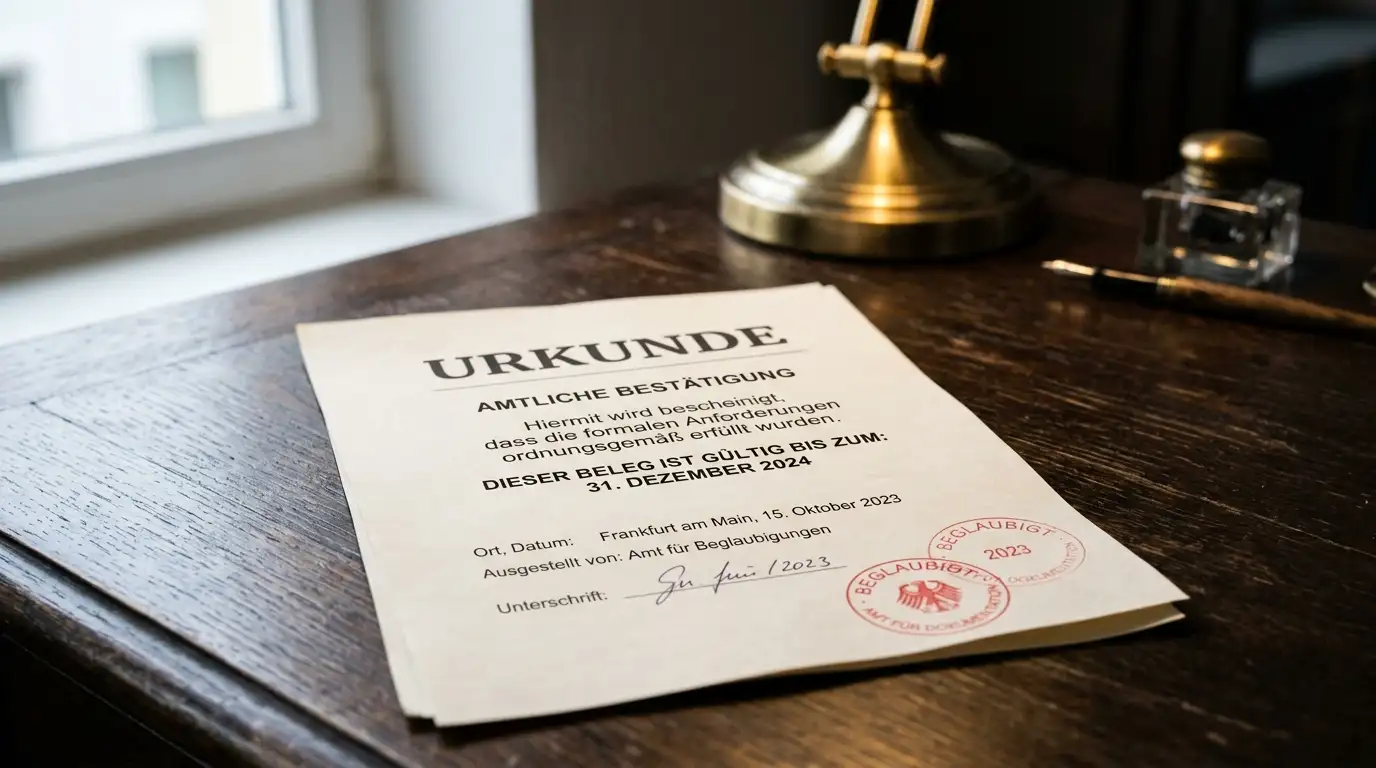 URKUNDE
AMTLICHE BESTÄTIGUNG
Hiermit wird bescheinigt,
dass die formalen Anforderungen
ordnungsgemäß erfüllt wurden.
DIESER BELEG IST GÜLTIG BIS ZUM:
31. DEZEMBER 2024
Ort, Datum: Frankfurt am Main, 15. Oktober 2023
Ausgestellt von: Amt für Beglaubigungen
Unterschrift: /2023
· BEGLAUBIGT ·
2023
DOKUMENTATION
· BEGLAUBIGT ·
AMT FÜR DOKUMENTATION